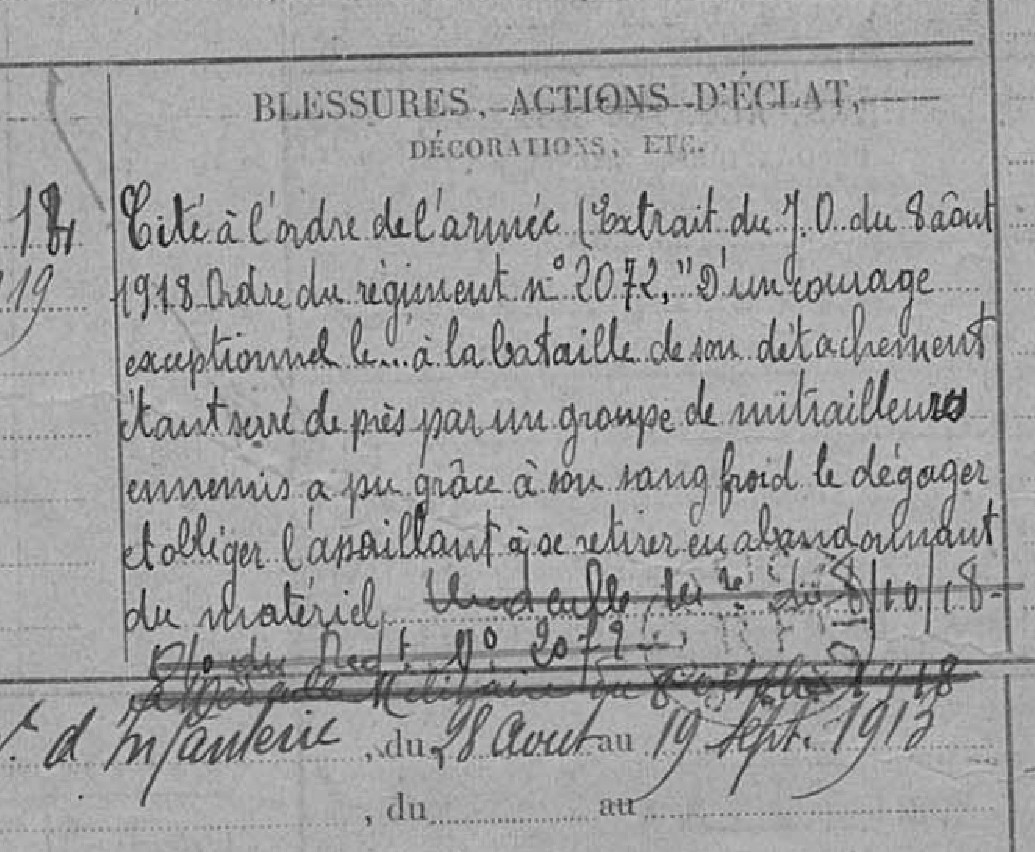 BLESSURES, ACTIONS D'ÉCLAT,
DÉCORATIONS, ETC.
18
19
Cité à l'ordre de l'armée (Extrait du J.O. du 8 âout
1918 Ordre du régiment n° 2072, "D'un courage
exceptionnel le... à la bataille de son détachement
étant serré de près par un groupe de mitrailleurs
ennemis a pu grâce à son sang froid le dégager
et obliger l'assaillant à se retirer en abandonnant
du matériel. du 8/10/18-
O/ du Regt. N° 2072
Médaille Militaire du 8 1918
d'Infanterie, du 28 Aout au 19 Sept. 1913
, du au